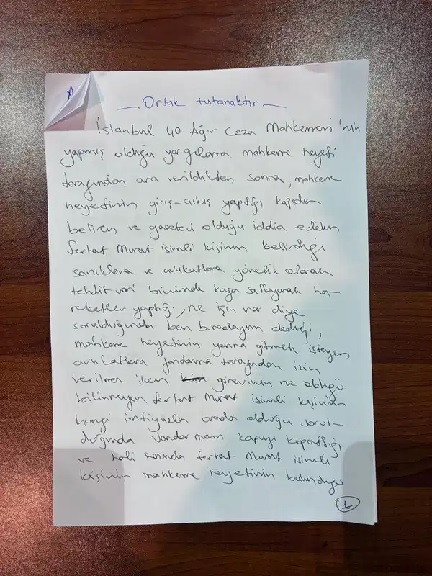 Ortak tutanaktır
İstanbul 40 Ağır Ceza Mahkemesi'nin
yapmış olduğu yargılama mahkeme heyeti
tarafından ara verildikten sonra, mahkeme
heyetinin giriş-çıkış yaptığı kapıda
beliren ve gazeteci olduğu iddia edilen,
Ferhat Murat isimli kişinin
sanıklara ve avukatlara yönelik olarak
tehditvari biçimde kafa sallayarak ha-
reketler yaptığı, ne işi var diye
sorulduğunda ben buradayım dediği,
mahkeme heyetinin yanına gitmek isteyen
avukatlara jandarma tarafından izin
verilmez iken görevinin ne olduğu
bilinmeyen Ferhat Murat isimli kişinin
hangi orada olduğu sorul-
duğunda jandarmanın kapıyı kapattığı
ve Ferhat Murat isimli
kişinin mahkeme heyetinin bulunduğu
1